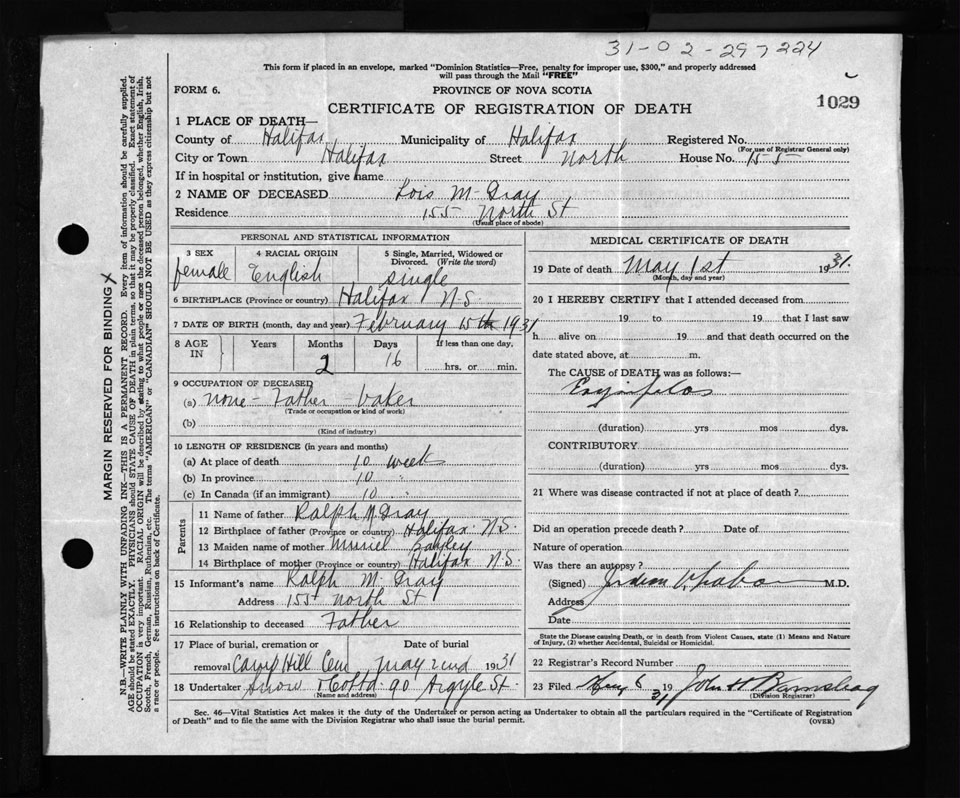 31-02-297224
This form if placed in an envelope, marked "Dominion Statistics—Free, penalty for improper use, $300," and properly addressed
will pass through the Mail "FREE"
FORM 6.
PROVINCE OF NOVA SCOTIA
1029
CERTIFICATE OF REGISTRATION OF DEATH
1 PLACE OF DEATH—
County of Halifax Municipality of Halifax Registered No.
(For use of Registrar General only)
City or Town Halifax Street North House No. 155
If in hospital or institution, give name
2 NAME OF DECEASED Lois M. Gray
Residence 155 North St
(Usual place of abode)
PERSONAL AND STATISTICAL INFORMATION
3 SEX 4 RACIAL ORIGIN 5 Single, Married, Widowed or
Divorced. (Write the word)
female English single
6 BIRTHPLACE (Province or country) Halifax N.S.
7 DATE OF BIRTH (month, day and year) February 15th 1931
8 AGE IN Years Months Days If less than one day,
2 16 hrs. or min.
9 OCCUPATION OF DECEASED
(a) none - Father - baker
(Trade or occupation or kind of work)
(b)
(Kind of industry)
10 LENGTH OF RESIDENCE (in years and months)
(a) At place of death 10 weeks
(b) In province 10 "
(c) In Canada (if an immigrant) 10 "
Parents
11 Name of father Ralph M. Gray
12 Birthplace of father (Province or country) Halifax N.S.
13 Maiden name of mother Muriel
14 Birthplace of mother (Province or country) Halifax N.S.
15 Informant's name Ralph M. Gray
Address 155 North St
16 Relationship to deceased Father
17 Place of burial, cremation or Date of burial
removal Camp Hill Cem May 2nd 1931
18 Undertaker Snow & Co Ltd. 90 Argyle St.
(Name and address)
MEDICAL CERTIFICATE OF DEATH
19 Date of death May 1st 1931.
(Month, day and year)
20 I HEREBY CERTIFY that I attended deceased from
19 to 19 that I last saw
h alive on 19 and that death occurred on the
date stated above, at m.
The CAUSE of DEATH was as follows:—
Erysipelas
(duration) yrs mos dys.
CONTRIBUTORY
(duration) yrs. mos. dys.
21 Where was disease contracted if not at place of death?
Did an operation precede death? Date of
Nature of operation
Was there an autopsy?
(Signed) M.D.
Address
Date
State the Disease causing Death, or in death from Violent Causes, state (1) Means and Nature
of Injury, (2) whether Accidental, Suicidal or Homicidal.
22 Registrar's Record Number
23 Filed May 6 1931 John H
(Division Registrar)
Sec. 46—Vital Statistics Act makes it the duty of the Undertaker or person acting as Undertaker to obtain all the particulars required in the "Certificate of Registration
of Death" and to file the same with the Division Registrar who shall issue the burial permit. (OVER)
MARGIN RESERVED FOR BINDING X
N.B.—WRITE PLAINLY WITH UNFADING INK—THIS IS A PERMANENT RECORD. Every item of information should be carefully supplied.
AGE should be stated EXACTLY. PHYSICIANS should STATE CAUSE OF DEATH in plain terms, so that it may be properly classified. Exact statement of
OCCUPATION is very important. RACIAL ORIGIN will be described by stating to what people or race the deceased person belonged, whether English, Irish,
Scotch, French, German, Russian, Ruthenian, etc. The terms "AMERICAN" or "CANADIAN" SHOULD NOT BE USED as they express citizenship but not
a race or people. See instructions on back of Certificate.